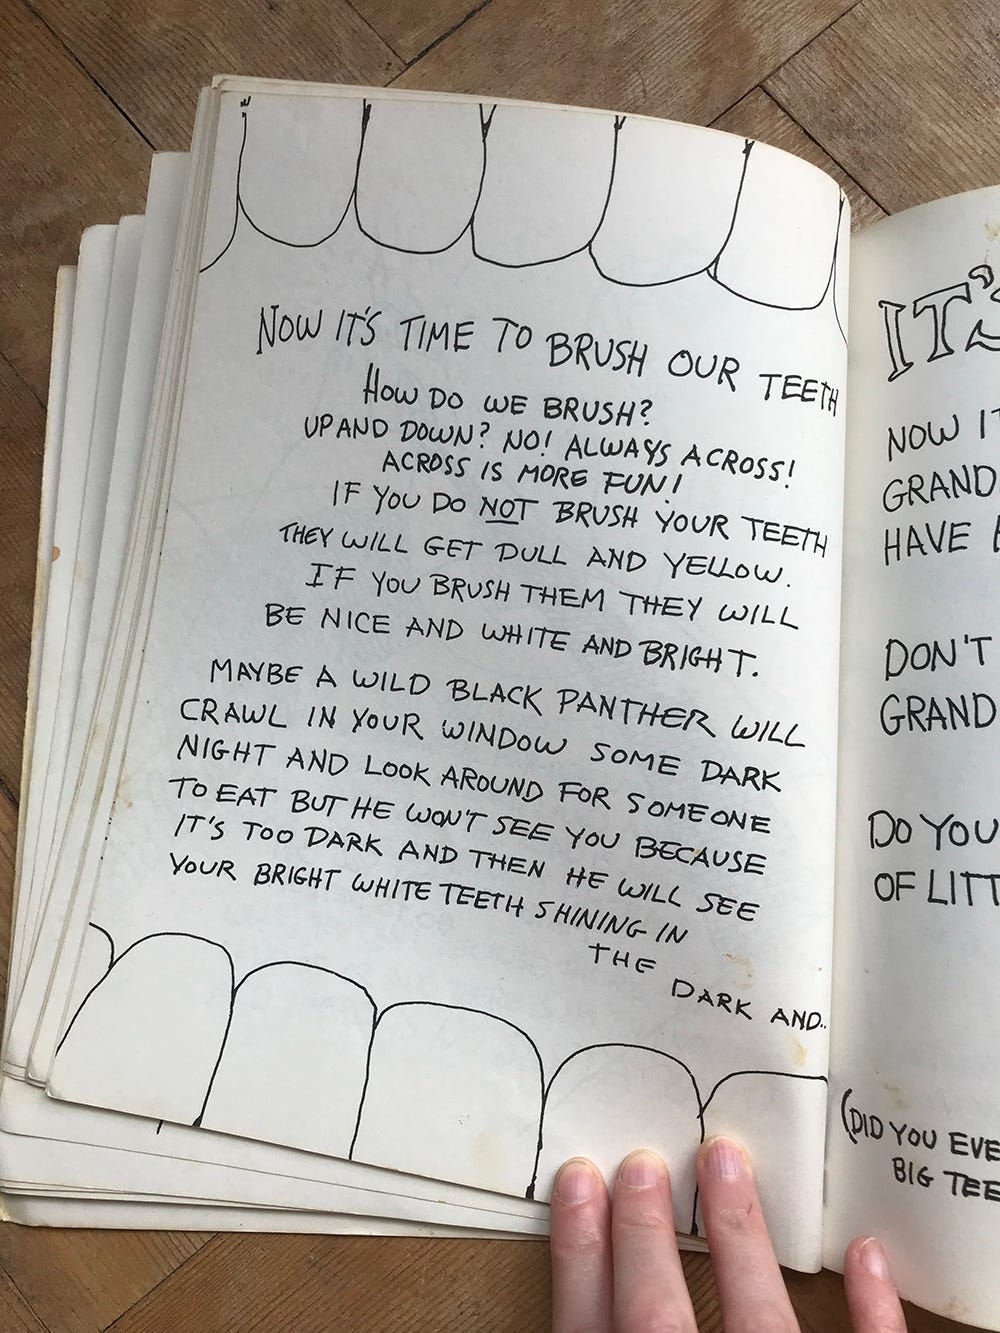 NOW IT'S TIME TO BRUSH OUR TEETH
HOW DO WE BRUSH?
UP AND DOWN? NO! ALWAYS ACROSS!
ACROSS IS MORE FUN!
IF YOU DO NOT BRUSH YOUR TEETH
THEY WILL GET DULL AND YELLOW.
IF YOU BRUSH THEM THEY WILL
BE NICE AND WHITE AND BRIGHT.
MAYBE A WILD BLACK PANTHER WILL
CRAWL IN YOUR WINDOW SOME DARK
NIGHT AND LOOK AROUND FOR SOMEONE
TO EAT BUT HE WON'T SEE YOU BECAUSE
IT'S TOO DARK AND THEN HE WILL SEE
YOUR BRIGHT WHITE TEETH SHINING IN
THE
DARK AND..
IT'S
NOW
GRAND
HAVE
DON'T
GRAND
DO YOU
OF
(DID YOU
BIG